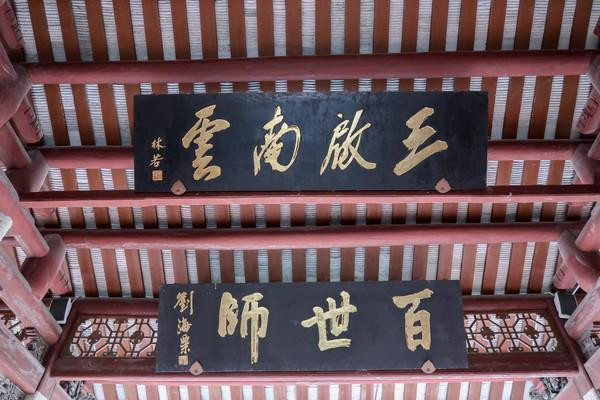 王啟南雲
林若
百世師
劉海粟